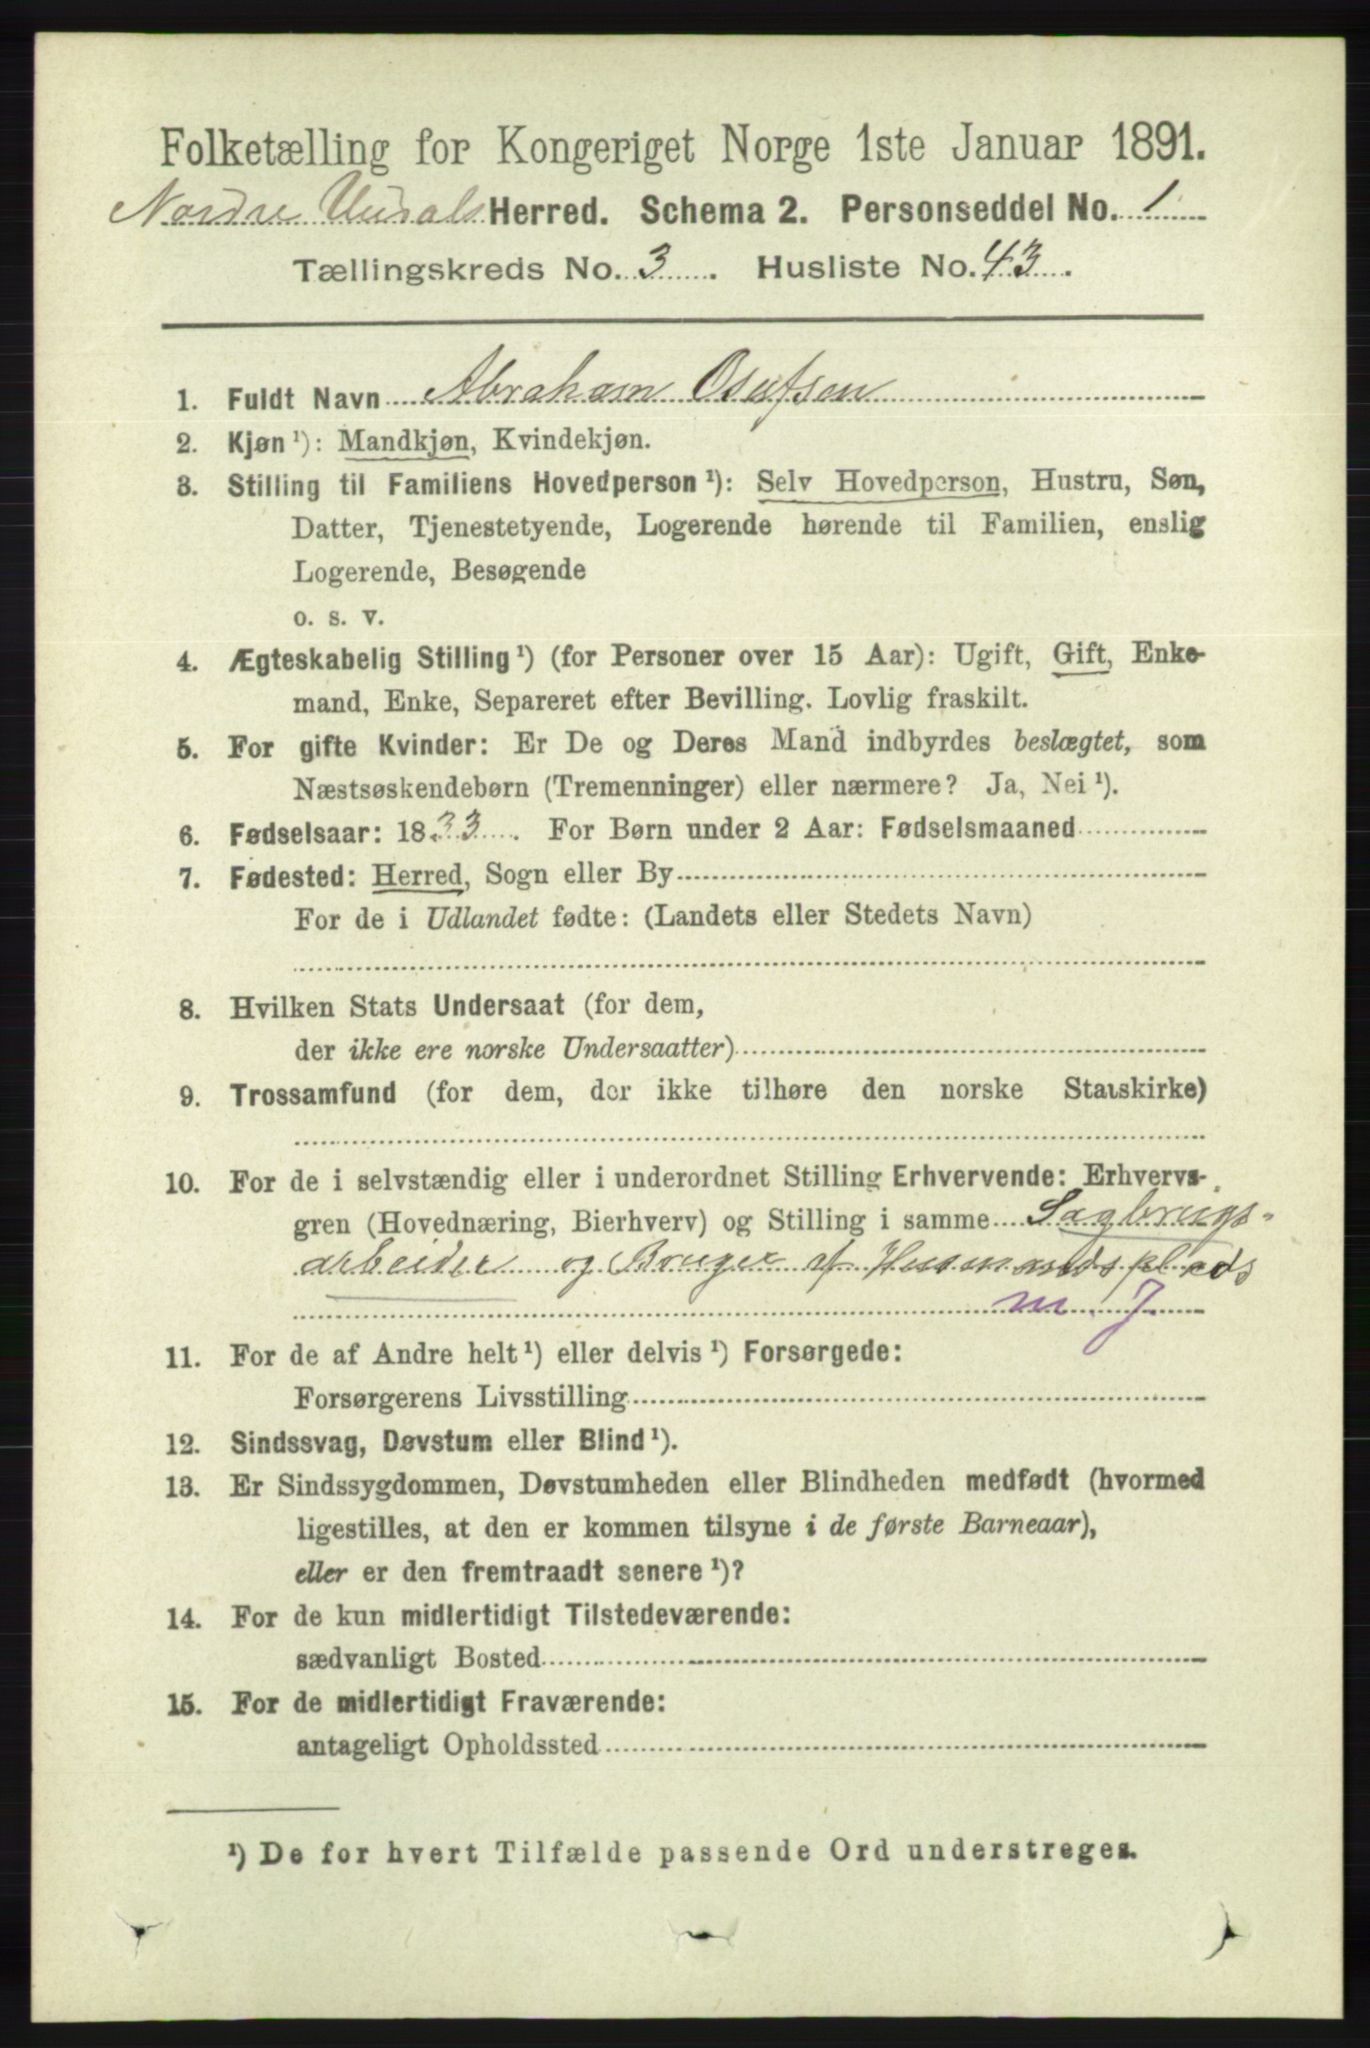 Folketælling for Kongeriget Norge 1ste Januar 1891.
Nordre Undals Herred. Schema 2. Personseddel No. 1
Tællingskreds No. 3. Husliste No. 43.
1. Fuldt Navn Abraham Osufsen
2. Kjøn ¹): Mandkjøn, Kvindekjøn.
3. Stilling til Familiens Hovedperson ¹): Selv Hovedperson, Hustru, Søn,
Datter, Tjenestetyende, Logerende hørende til Familien, enslig
Logerende, Besøgende
o. s. v.
4. Ægteskabelig Stilling ¹) (for Personer over 15 Aar): Ugift, Gift, Enke-
mand, Enke, Separeret efter Bevilling. Lovlig fraskilt.
5. For gifte Kvinder: Er De og Deres Mand indbyrdes beslægtet, som
Næstsøskendebørn (Tremenninger) eller nærmere? Ja, Nei ¹).
6. Fødselsaar: 1833. For Børn under 2 Aar: Fødselsmaaned
7. Fødested: Herred, Sogn eller By
For de i Udlandet fødte: (Landets eller Stedets Navn)
8. Hvilken Stats Undersaat (for dem,
der ikke ere norske Undersaatter)
9. Trossamfund (for dem, der ikke tilhøre den norske Statskirke)
10. For de i selvstændig eller i underordnet Stilling Erhvervende: Erhvervs-
gren (Hovednæring, Bierhverv) og Stilling i samme Sagbrugs-
arbeider og Bruger af Husmandsplads
m. J
11. For de af Andre helt ¹) eller delvis ¹) Forsørgede:
Forsørgerens Livsstilling
12. Sindssvag, Døvstum eller Blind ¹).
13. Er Sindssygdommen, Døvstumheden eller Blindheden medfødt (hvormed
ligestilles, at den er kommen tilsyne i de første Barneaar),
eller er den fremtraadt senere ¹)?
14. For de kun midlertidigt Tilstedeværende:
sædvanligt Bosted
15. For de midlertidigt Fraværende:
antageligt Opholdssted
¹) De for hvert Tilfælde passende Ord understreges.